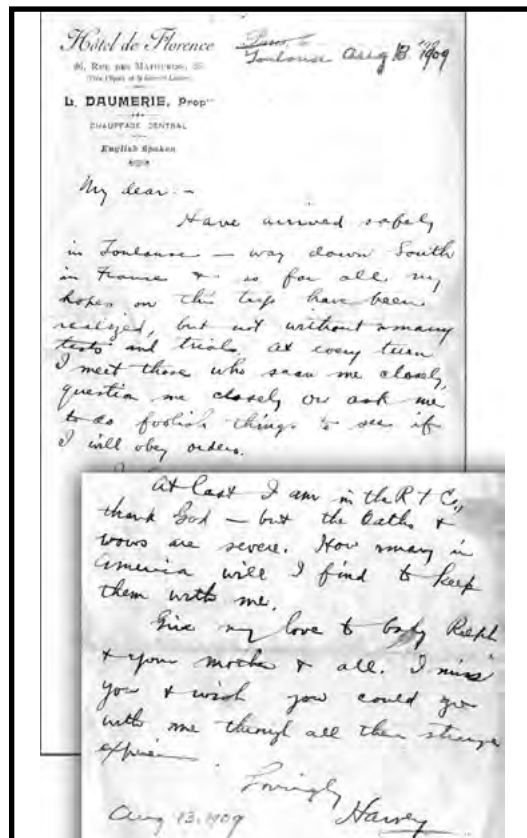 Hôtel de Florence
RUE DES MATHURINS
L. DAUMERIE, Propre
CHAUFFAGE CENTRAL
English Spoken
Toulouse Aug 13. 1909
My dear:—
Have arrived safely
in Toulouse — way down South
in France & so far all my
hopes on this trip have been
realized, but not without many
tests and trials. At every turn
I meet those who scan me closely,
question me closely or ask me
to do foolish things to see if
I will obey orders.
At Last I am in the R + C,
thank God — but the Oaths &
vows are severe. How many in
America will I find to keep
them with me.
Give my love to baby Ralph
& your mother & all. I miss
you & wish you could go
with me through all these strange
Lovingly
Harvey
Aug 13. 1909